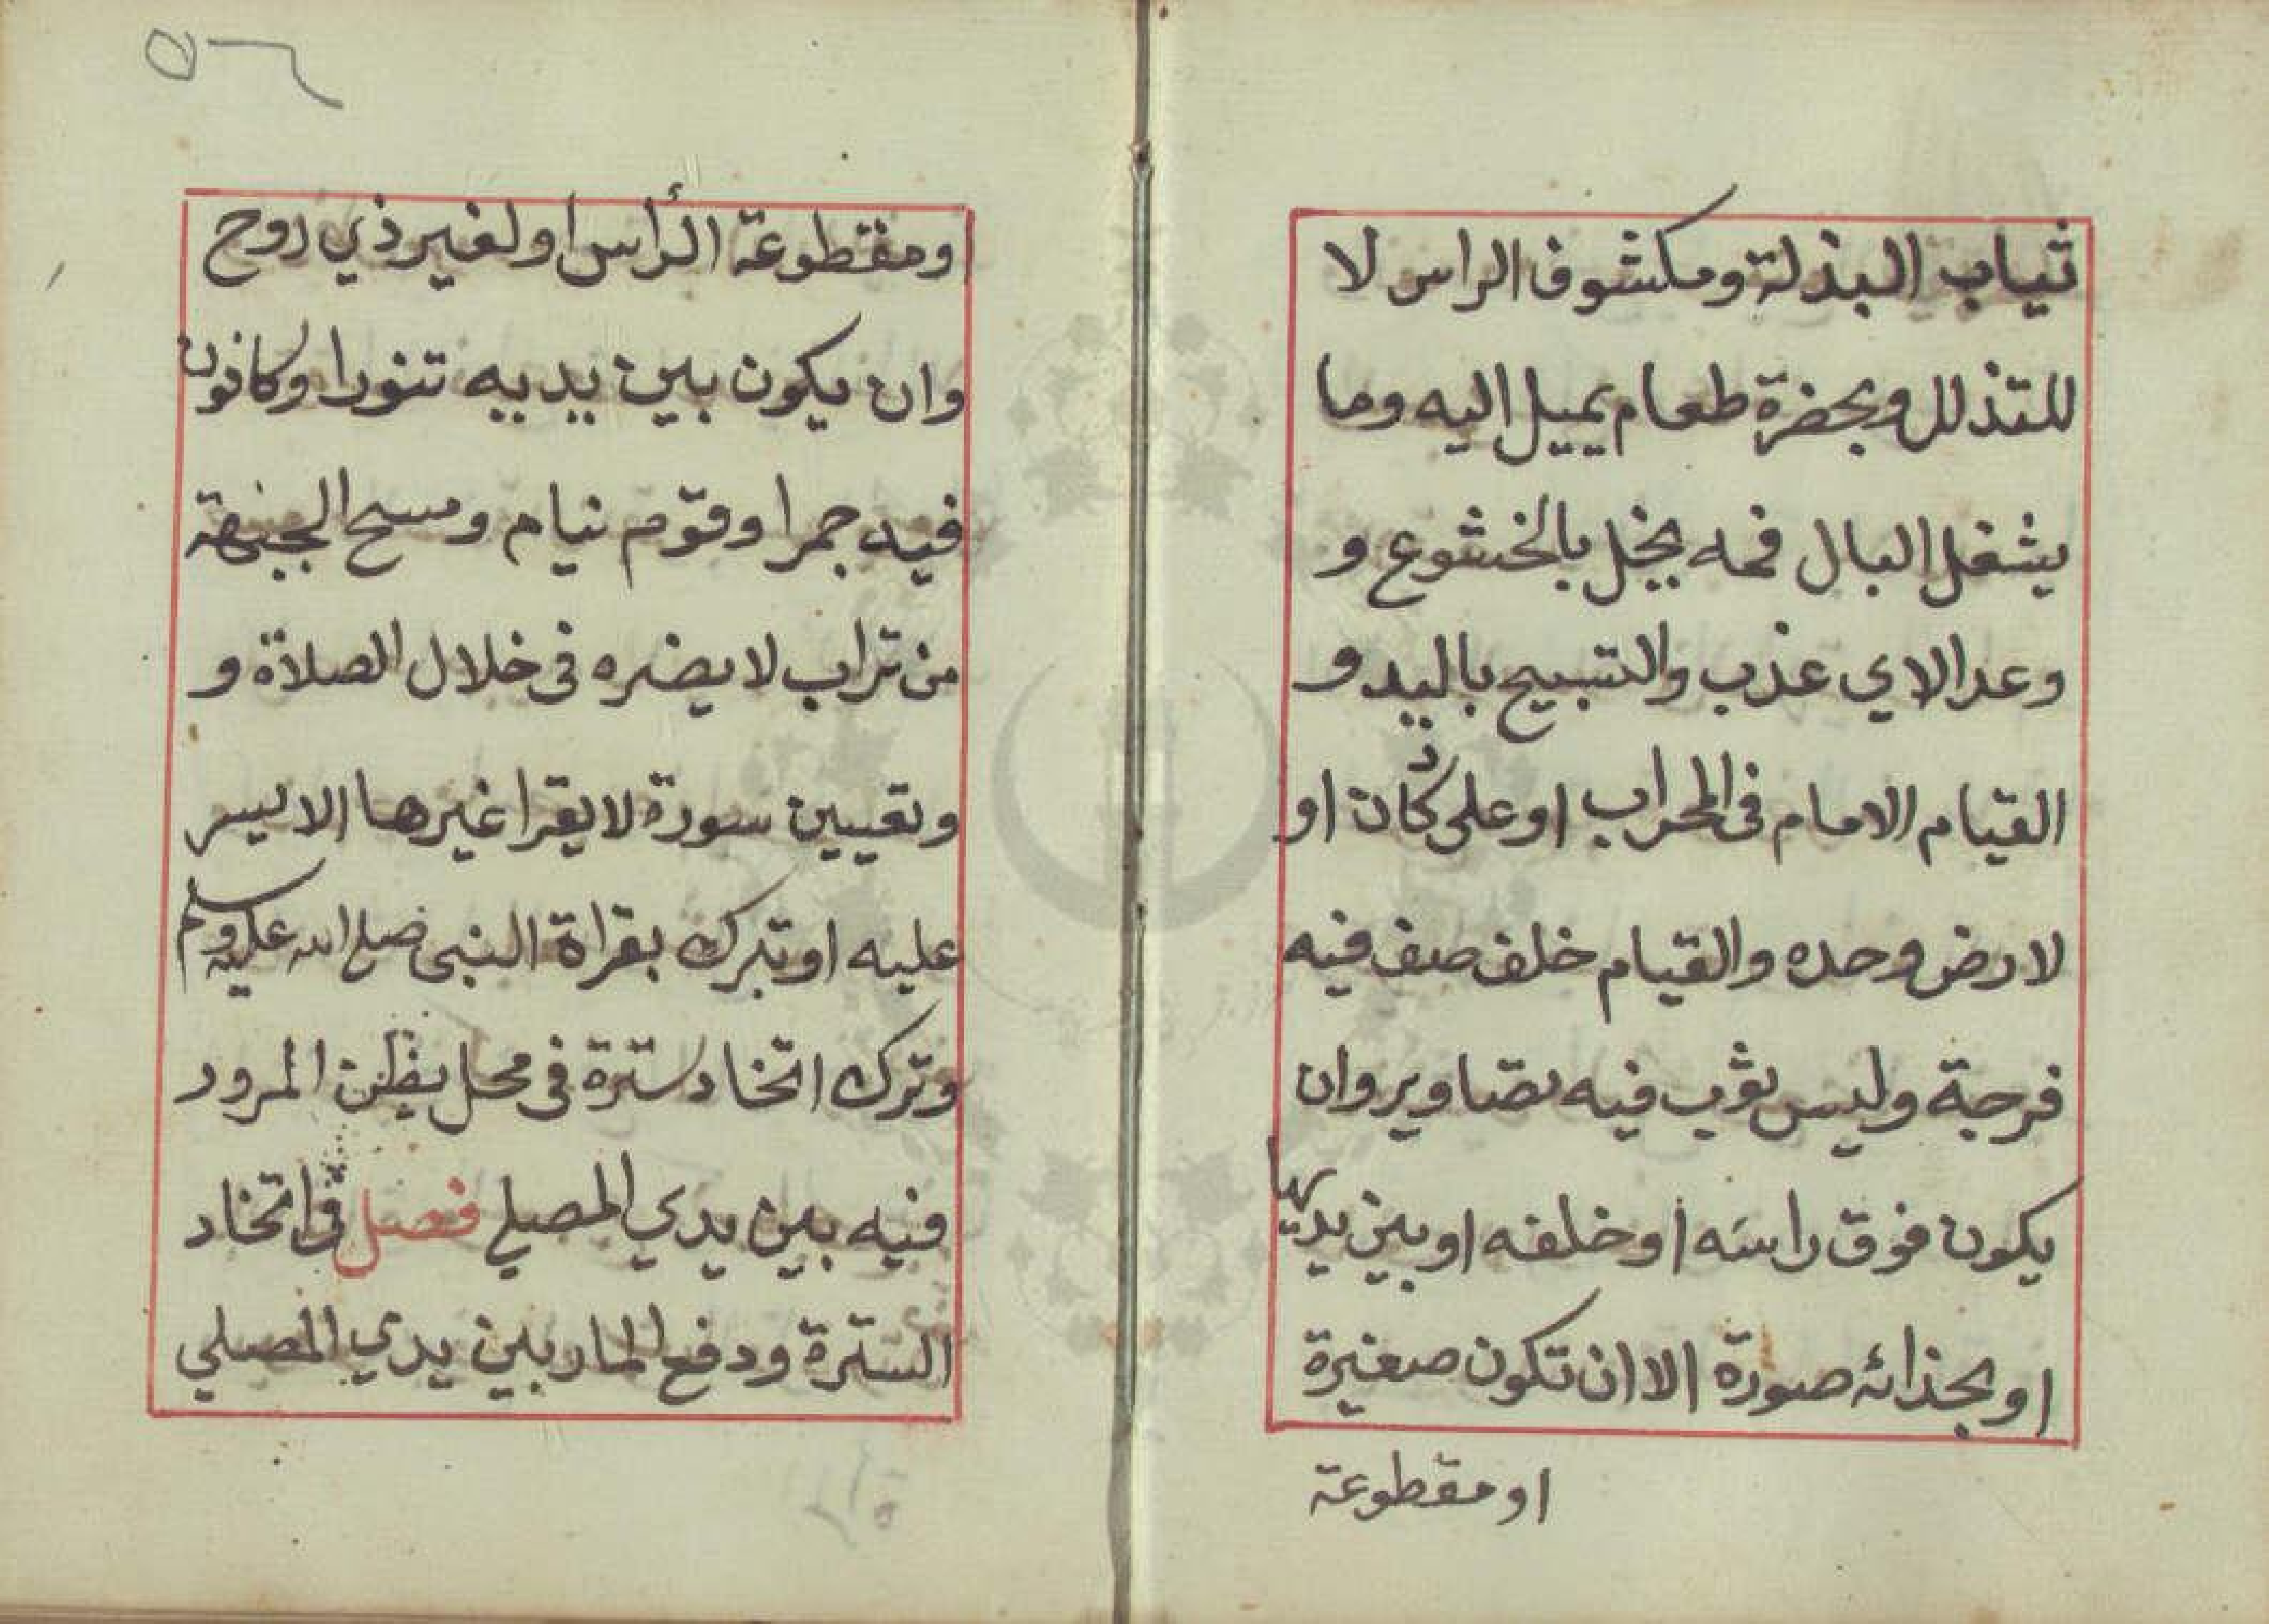 ثياب البذلة ومكشوف الراس لا
للتذلل وبحضرة طعام يميل اليه وما
يشغل البال فمه يخل بالخشوع و
وعد الاي عذب والتسبيح باليد و
القيام الامام في المحراب او على دكان او
لارض وحده والقيام خلف صف فيه
فرجة وليس ثوب فيه تصاوير وان
يكون فوق راسه او خلفه او بين يديها
او بحذائه صورة الا ان تكون صغيرة
او مقطوعة
٥٦
او مقطوعة الرأس او لغير ذي روح
وان يكون بين يديه تنورا وكانون
فيه جمرا وقوم نيام ومسح الجبهة
من تراب لا يضره في خلال الصلاة و
وتعيين سورة لا يقرا غيرها الا ليسر
عليه او تبرك بقراة النبي صلى الله عليه وسلم
وترك اتخاد سترة في محل يظن المرور
فيه بين يدي المصلي فصل في اتخاد
السترة ودفع المار بين يدي المصلي